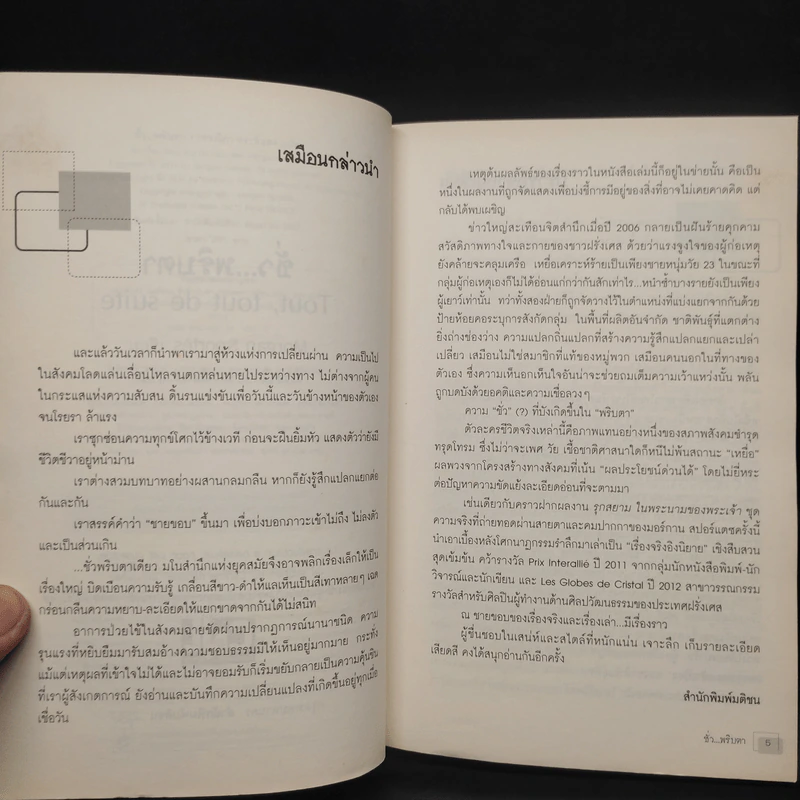 เสมือนกล่าวนำ
และแล้ววันเวลาก็นำพาเรามาสู่ห้วงแห่งการเปลี่ยนผ่าน ความเป็นไป
ในสังคมโลดแล่นเลื่อนไหลจนตกหล่นหายไประหว่างทาง ไม่ต่างจากผู้คน
ในกระแสแห่งความสับสน ดิ้นรนแข่งขันเพื่อวันนี้และวันข้างหน้าของตัวเอง
จนโรยรา ล้าแรง
เราซุกซ่อนความทุกข์โศกไว้ข้างเวที ก่อนจะฝืนยิ้มหัว แสดงตัวว่ายังมี
ชีวิตชีวาอยู่หน้าม่าน
เราต่างสวมบทบาทอย่างผสานกลมกลืน หากก็ยังรู้สึกแปลกแยกต่อ
กันและกัน
เราสรรค์คำว่า "ชายขอบ" ขึ้นมา เพื่อบ่งบอกภาวะเข้าไม่ถึง ไม่ลงตัว
และเป็นส่วนเกิน
...ชั่วพริบตาเดียว มโนสำนึกแห่งยุคสมัยจึงอาจพลิกเรื่องเล็กให้เป็น
เรื่องใหญ่ บิดเบือนความรับรู้ เกลื่อนสีขาว-ดำให้แลเห็นเป็นสีเทาหลายๆ เฉด
กร่อนกลืนความหยาบ-ละเอียดให้แยกขาดจากกันได้ไม่สนิท
อาการป่วยไข้ในสังคมฉายชัดผ่านปรากฏการณ์นานาชนิด ความ
รุนแรงที่หยิบยืมมารับสมอ้างความชอบธรรมมีให้เห็นอยู่มากมาย กระทั่ง
แม้แต่เหตุผลที่เข้าใจไม่ได้และไม่อาจยอมรับก็เริ่มขยับกลายเป็นความคุ้นชิน
ที่เราผู้สังเกตการณ์ ยังอ่านและบันทึกความเปลี่ยนแปลงที่เกิดขึ้นอยู่ทุกเมื่อ
เชื่อวัน
เหตุต้นผลลัพธ์ของเรื่องราวในหนังสือเล่มนี้ก็อยู่ในข่ายนั้น คือเป็น
หนึ่งในผลงานที่ถูกจัดแสดงเพื่อบ่งชี้การมีอยู่ของสิ่งที่อาจไม่เคยคาดคิด แต่
กลับได้พบเผชิญ
ข่าวใหญ่สะเทือนจิตสำนึกเมื่อปี 2006 กลายเป็นฝันร้ายคุกคาม
สวัสดิภาพทางใจและกายของชาวฝรั่งเศส ด้วยว่าแรงจูงใจของผู้ก่อเหตุ
ยังคล้ายจะคลุมเครือ เหยื่อเคราะห์ร้ายเป็นเพียงชายหนุ่มวัย 23 ในขณะที่
กลุ่มผู้ก่อเหตุเองก็ไม่ได้อ่อนแก่กว่ากันสักเท่าไร...หนำซ้ำบางรายยังเป็นเพียง
ผู้เยาว์เท่านั้น ทว่าทั้งสองฝ่ายก็ถูกจัดวางไว้ในตำแหน่งที่แบ่งแยกจากกันด้วย
ป้ายห้อยคอระบุการสังกัดกลุ่ม ในพื้นที่ผลิตอันจำกัด ชาติพันธุ์ที่แตกต่าง
ยิ่งถ่างช่องว่าง ความแปลกถิ่นแปลกที่สร้างความรู้สึกแปลกแยกและเปล่า
เปลี่ยว เสมือนไม่ใช่สมาชิกที่แท้ของหมู่พวก เสมือนคนนอกในที่ทางของ
ตัวเอง ซึ่งความเห็นอกเห็นใจอันน่าจะช่วยถมเติมความเว้าแหว่งนั้น พลัน
ถูกบดบังด้วยอคติและความเชื่อลวงๆ
ความ "ชั่ว" (?) ที่บังเกิดขึ้นใน "พริบตา"
ตัวละครชีวิตจริงเหล่านี้คือภาพแทนอย่างหนึ่งของสภาพสังคมชำรุด
ทรุดโทรม ซึ่งไม่ว่าจะเพศ วัย เชื้อชาติศาสนาใดก็หนีไม่พ้นสถานะ "เหยื่อ"
ผลพวงจากโครงสร้างทางสังคมที่เน้น "ผลประโยชน์ด่วนได้" โดยไม่ยี่หระ
ต่อปัญหาความขัดแย้งละเอียดอ่อนที่จะตามมา
เช่นเดียวกับคราวฝากผลงาน รุกสยาม ในพระนามของพระเจ้า ชุด
ความจริงที่ถ่ายทอดผ่านสายตาและคมปากกาของมอร์กาน สปอร์แตซครั้งนี้
นำเอาเนื้องหลังโศกนาฏกรรมรำลึกมาเล่าเป็น "เรื่องจริงอิงนิยาย" เชิงสืบสวน
สุดเข้มข้น คว้ารางวัล Prix Interallié ปี 2011 จากกลุ่มนักหนังสือพิมพ์-นัก
วิจารณ์และนักเขียน และ Les Globes de Cristal ปี 2012 สาขาวรรณกรรม
รางวัลสำหรับศิลปินผู้ทำงานด้านศิลปวัฒนธรรมของประเทศฝรั่งเศส
ณ ชายขอบของเรื่องจริงและเรื่องเล่า...มีเรื่องราว
ผู้ชื่นชอบในเสน่ห์และสไตล์ที่หนักแน่น เจาะลึก เก็บรายละเอียด
เสียดสี คงได้สนุกอ่านกันอีกครั้ง
สำนักพิมพ์มติชน
ชั่ว...พริบตา